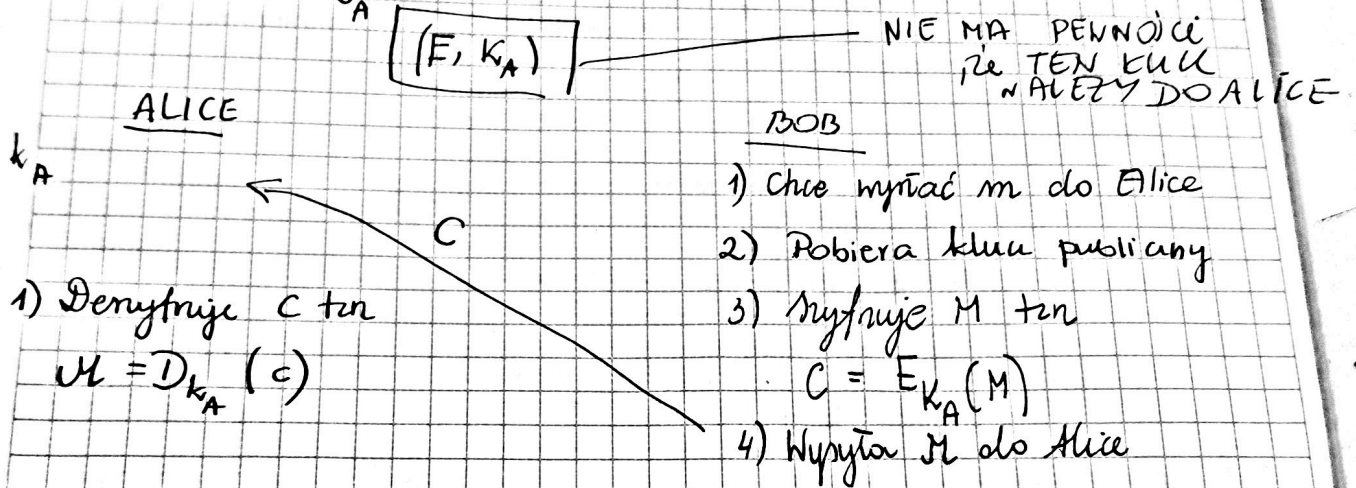 A
(E, K_A)
NIE MA PEWNOŚCI
że TEN KLUCZ
NALEŻY DO ALICE
ALICE
k_A
C
1) Deszyfruje C tzn
M = D_{k_A} (c)
BOB
1) Chce wysłać m do Alice
2) Pobiera klucz publiczny
3) Szyfruje M tzn
C = E_{K_A}(M)
4) Wysyła M do Alice